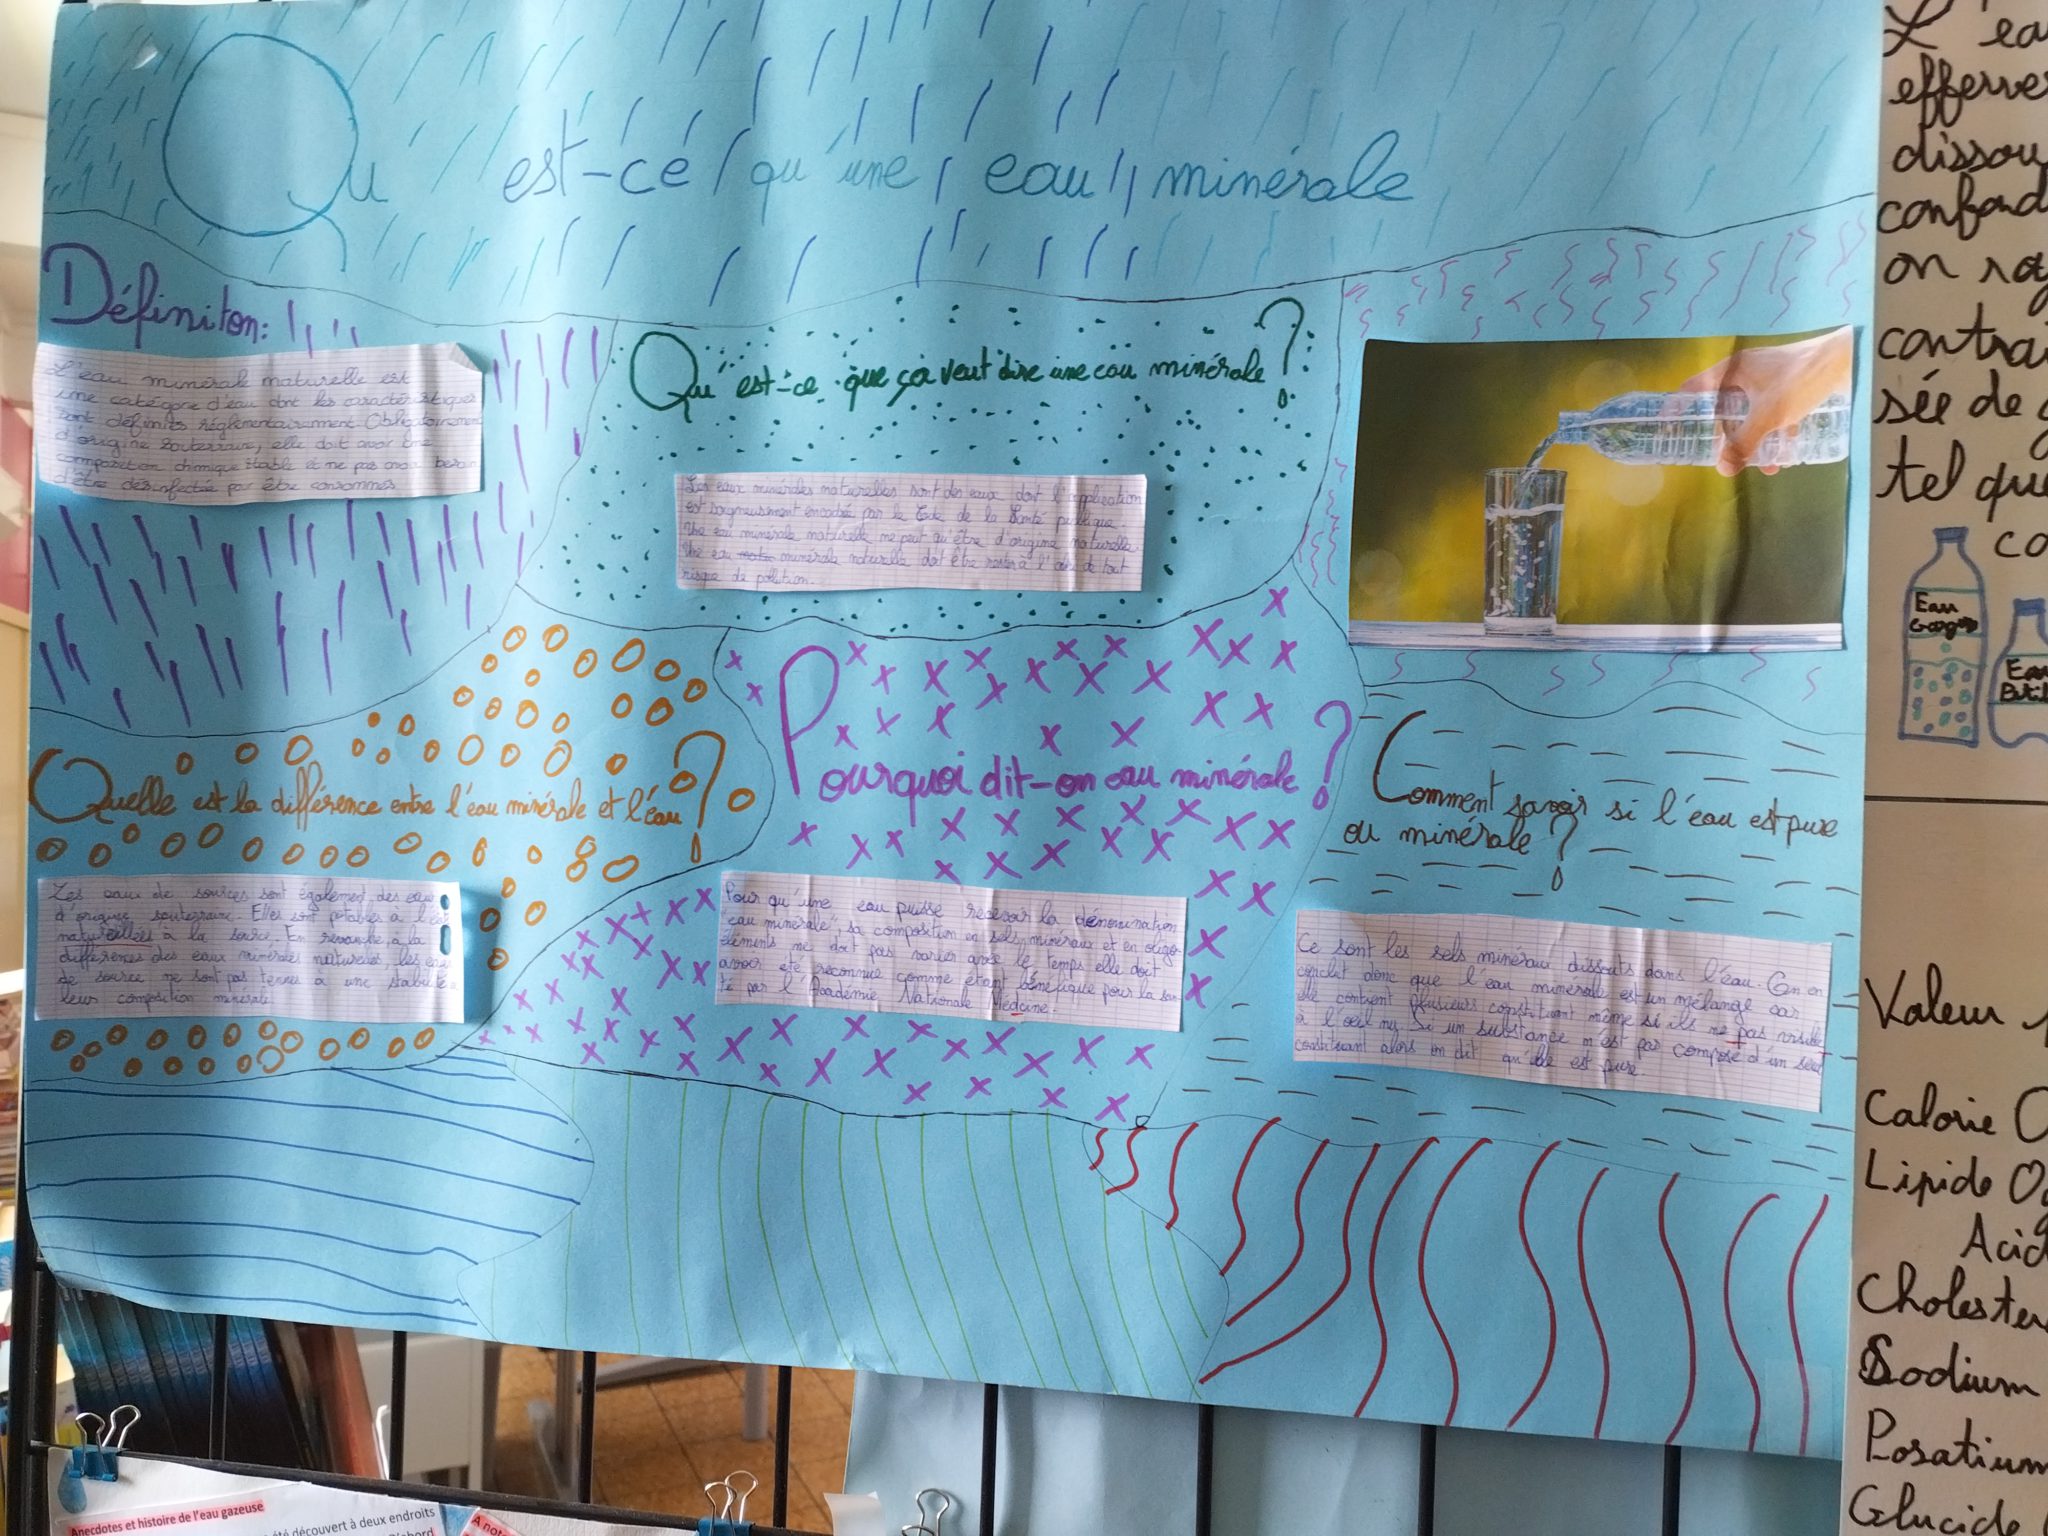 Qu est-ce qu'une eau minérale
Définiton:
L'eau minérale naturelle est
une catégorie d'eau dont les caractéristiques
sont définies réglementairement. Obligatoirement
d'origine souterraine, elle doit avoir une
composition chimique stable et ne pas avoir besoin
d'être désinfectée par être consommés
Qu'est-ce que ça veut dire une eau minérale ?
Les eaux minérales naturelles sont des eaux dont l'application
est soigneusement encadrée par le Code de la Santé publique.
Une eau minérale naturelle ne peut qu'être d'origine naturelle.
Une eau minérale naturelle doit être rester à l'abri de tout
risque de pollution.
Quelle est la différence entre l'eau minérale et l'eau ?
Les eaux de sources sont également des eaux
d'origine souterraine. Elles sont potables à l'état
naturelles à la source. En revanche, à la
différences des eaux minérales naturelles, les eaux
de source ne sont pas tenues à une stabilité
leur composition minérale
Pourquoi dit-on eau minérale ?
Pour qu'une eau puisse recevoir la dénomination
"eau minérale", sa composition en sels minéraux et en oligo-
éléments ne doit pas varier avec le temps elle doit
avoir été reconnue comme étant bénéfique pour la san-
té par l'Académie Nationale Medcine.
Comment savoir si l'eau est pure
ou minérale ?
Ce sont les sels minéraux dissouts dans l'eau. On en
conclut donc que l'eau minérale est un mélange car
elle contient plusieurs constituant même si ils ne pas visible
à l'oeil nu. Si un substance n'est pas composé d'un seul
constituant alors on dit qu'elle est pure.
L'eau
efferves
dissou
confond
on ra
contrai
sée de g
tel que
co
Eau
Eau
Valeur
Calorie 0
Lipide 0
Acid
Cholester
Sodium
Posatium
Glucide
Anecdotes et histoire de l'eau gazeuse
été découvert à deux endroits
D'abord
A not